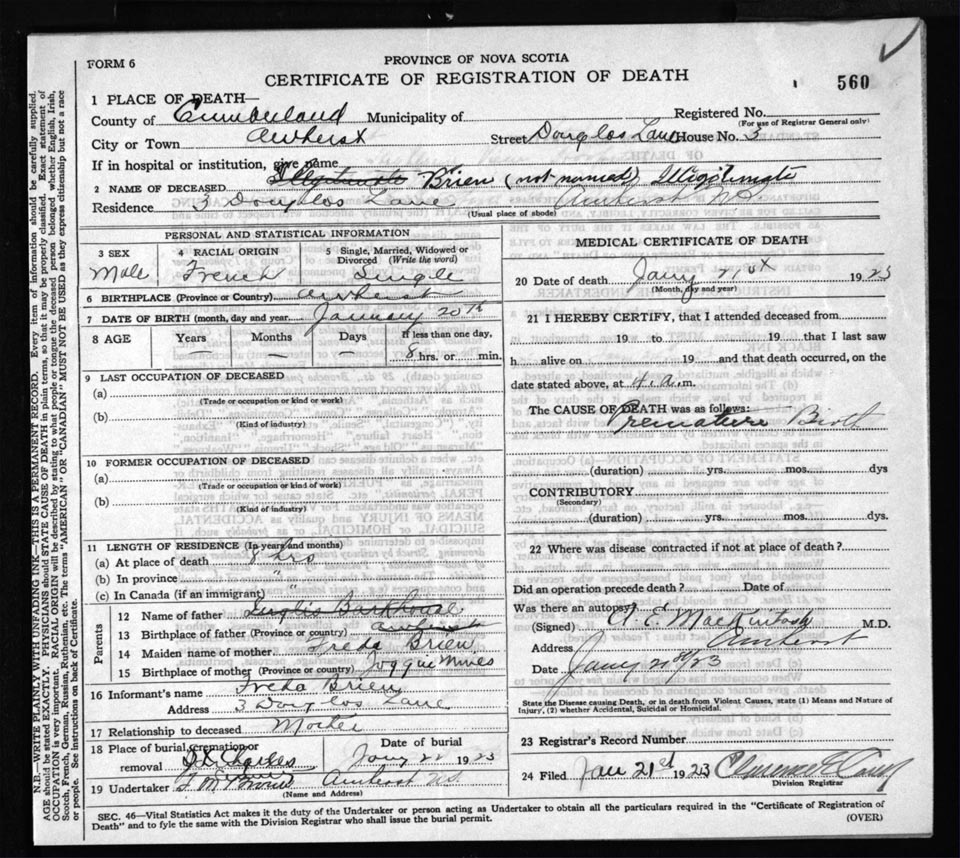 FORM 6
PROVINCE OF NOVA SCOTIA
CERTIFICATE OF REGISTRATION OF DEATH
560
1 PLACE OF DEATH—
County of Cumberland Municipality of Registered No.
(For use of Registrar General only)
City or Town Amherst Street Douglas Lane House No. 3
If in hospital or institution, give name
2 NAME OF DECEASED Illegitimate Brien (not named) Illigitimate
Residence 3 Douglas Lane Amherst N.S.
(Usual place of abode)
PERSONAL AND STATISTICAL INFORMATION
3 SEX 4 RACIAL ORIGIN 5 Single, Married, Widowed or Divorced (Write the word)
Male French Single
6 BIRTHPLACE (Province or Country) Amherst
7 DATE OF BIRTH (month, day and year) January 20th
8 AGE Years Months Days If less than one day,
— — — 8 hrs. or min.
9 LAST OCCUPATION OF DECEASED
(a)
(Trade or occupation or kind of work)
(b)
(Kind of industry)
10 FORMER OCCUPATION OF DECEASED
(a)
(Trade or occupation or kind of work)
(b)
(Kind of industry)
11 LENGTH OF RESIDENCE (In years and months)
(a) At place of death 8 hrs
(b) In province "
(c) In Canada (if an immigrant) "
Parents
12 Name of father Barkhouse
13 Birthplace of father (Province or country) Amherst
14 Maiden name of mother Freda Brien
15 Birthplace of mother (Province or country) Joggin Mines
16 Informant's name Freda Brien
Address 3 Douglas Lane
17 Relationship to deceased Mother
18 Place of burial, cremation or removal St. Charles Date of burial Jany 22 1923
19 Undertaker Amherst N.S.
(Name and Address)
MEDICAL CERTIFICATE OF DEATH
20 Date of death Jany 21st 1923
(Month, day and year)
21 I HEREBY CERTIFY, that I attended deceased from
19 to 19 that I last saw
h alive on 19 and that death occurred, on the
date stated above, at 4 a.m.
The CAUSE OF DEATH was as follows:
Premature Birth
(duration) yrs. mos. dys
CONTRIBUTORY
(Secondary)
(duration) yrs. mos. dys.
22 Where was disease contracted if not at place of death?
Did an operation precede death? Date of
Was there an autopsy
(Signed) A. E. MacKintosh M.D.
Address Amherst
Date Jany 21st/23
State the Disease causing Death, or in death from Violent Causes, state (1) Means and Nature of
Injury, (2) whether Accidental, Suicidal or Homicidal.
23 Registrar's Record Number
24 Filed Jan 21st 1923 Clarence E.
Division Registrar
SEC. 46—Vital Statistics Act makes it the duty of the Undertaker or person acting as Undertaker to obtain all the particulars required in the "Certificate of Registration of
Death" and to fyle the same with the Division Registrar who shall issue the burial permit. (OVER)
N.B.—WRITE PLAINLY WITH UNFADING INK—THIS IS A PERMANENT RECORD. Every item of information should be carefully supplied.
AGE should be stated EXACTLY. PHYSICIANS should STATE CAUSE OF DEATH in plain terms, so that it may be properly classified. Exact statement of
OCCUPATION is very important. RACIAL ORIGIN will be described by stating to what people or tongue the deceased person belonged, whether English, Irish,
Scotch, French, German, Russian, Ruthenian, etc. The terms "AMERICAN" OR "CANADIAN" MUST NOT BE USED as they express citizenship but not a race
or people. See instructions on back of Certificate.